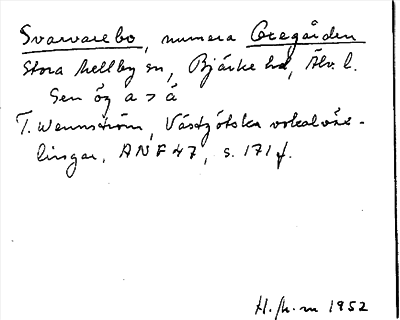 Svarvarebo, numera Oregården
Stora Mellby sn, Bjärke hd, Älv. l.
Sen ög a > å
T. Wennström, Västgötska vokalväx-
lingar, ANF 47, s. 171 f.
1952